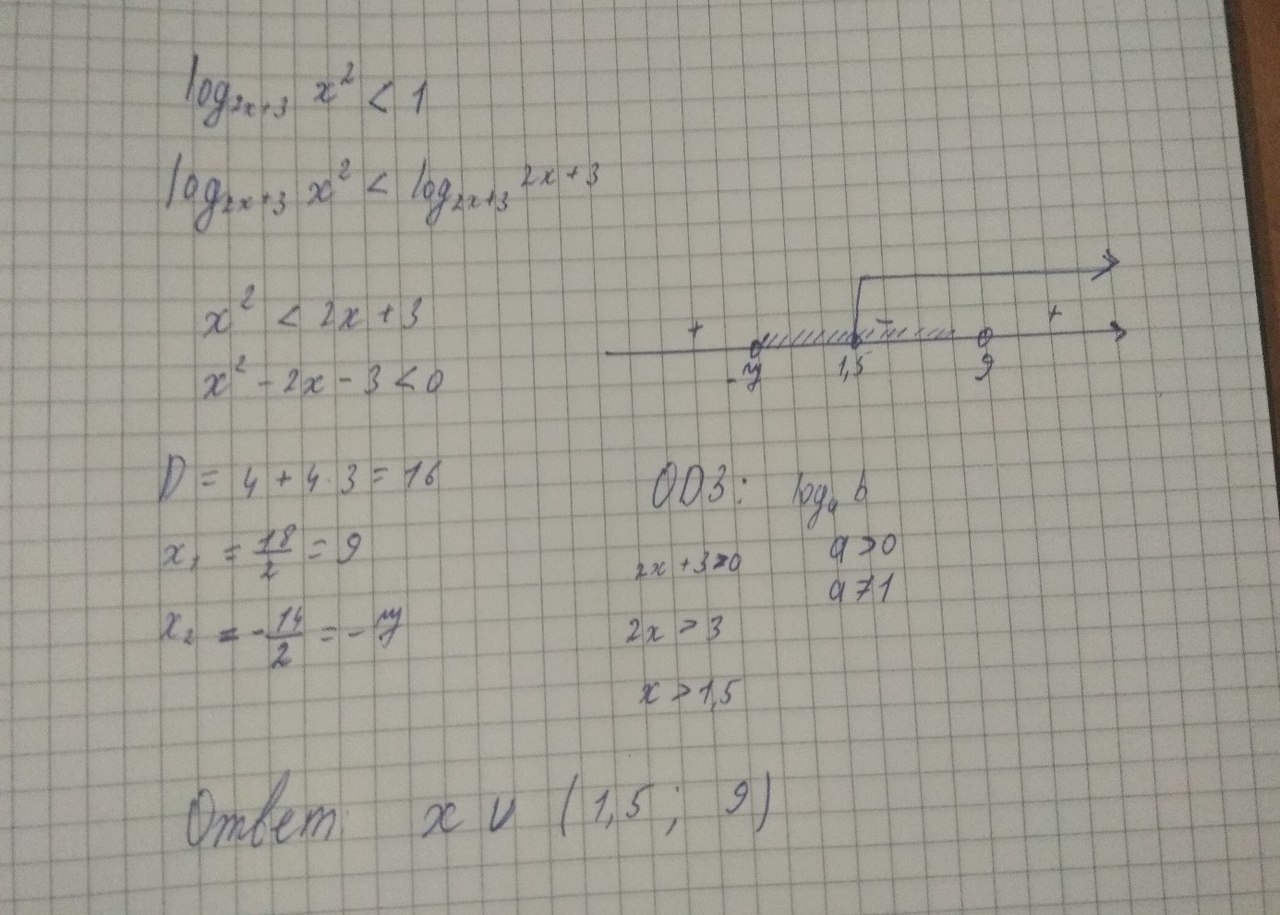 log₂ₓ₊₃ x² < 1
log₂ₓ₊₃ x² < log₂ₓ₊₃ 2x+3
x² < 2x + 3
x² - 2x - 3 < 0
D = 4 + 4·3 = 16
x₁ = 18/2 = 9
x₂ = -14/2 = -7
+ - +
-7 1,5 9
ОДЗ: logₐ b
a > 0
a ≠ 1
2x + 3 > 0
2x > 3
x > 1,5
Ответ x ∪ (1,5; 9)